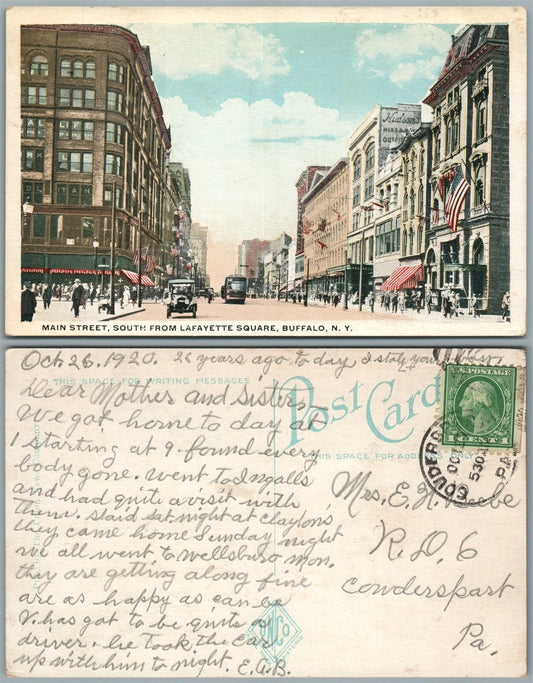 Hudson's
MEN'S
OUTFIT
MAIN STREET, SOUTH FROM LAFAYETTE SQUARE, BUFFALO, N. Y.
Oct. 26. 1920. 26 years ago to day I stole your
THIS SPACE FOR WRITING MESSAGES
Post Card
THIS SPACE FOR ADDRESS ONLY
U.S. POSTAGE
1 CENT 1
COUDERSPORT
OCT
530
PA.
Dear Mother and Sister,
We got home to day at
1 starting at 9. found every
body gone. went to Ingalls
and had quite a visit with
them. staid sat night at clayton's
they came home Sunday night
we all went to wellsboro mon.
they are getting along fine
are as happy as can be
V. has got to be quite a
driver. he took the car
up with him to night. E.A.B.
Mrs. E. H.
R.D. 6
Cowderspart
Pa.